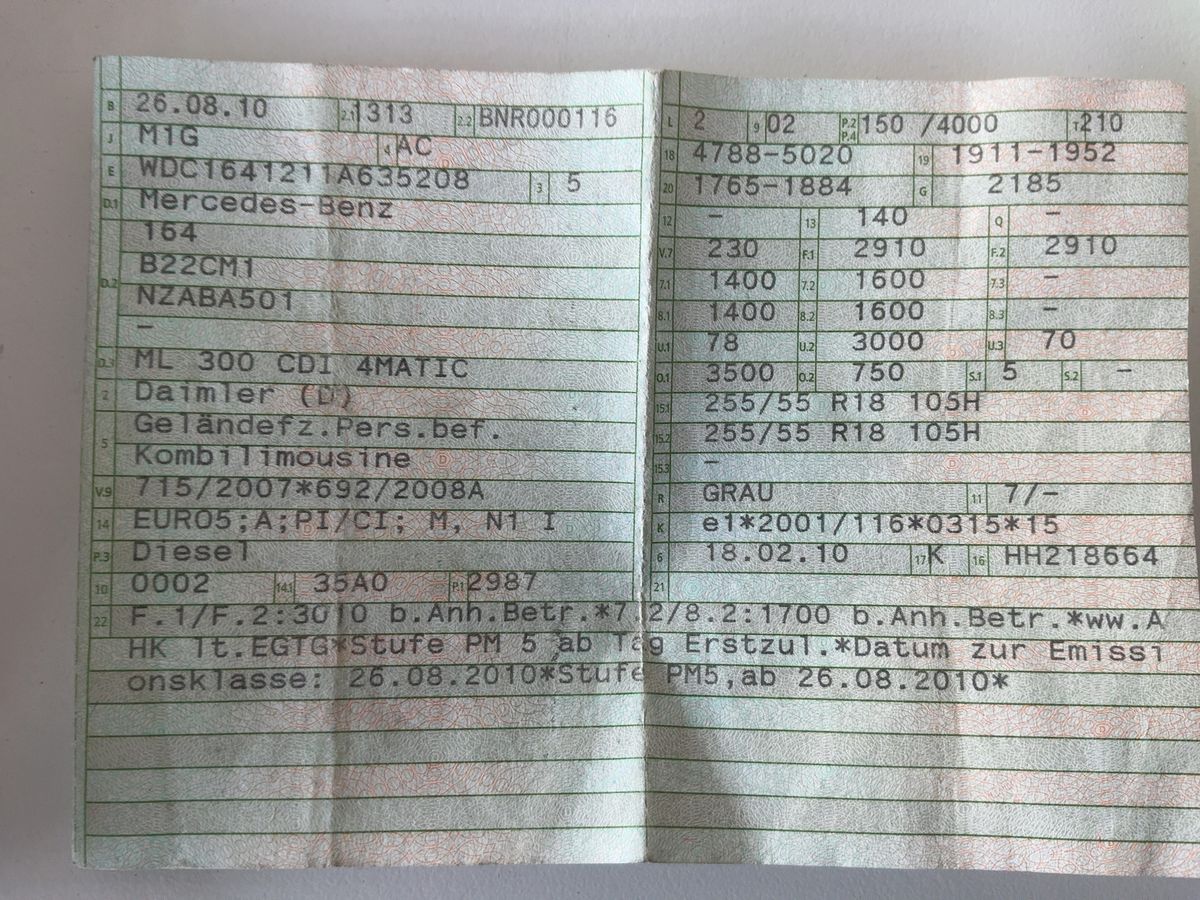 B 26.08.10 2.1 1313 2.2 BNR000116
J M1G 4 AC
E WDC1641211A635208 3 5
D.1 Mercedes-Benz
164
D.2 B22CM1
NZABA501
–
D.3 ML 300 CDI 4MATIC
2 Daimler (D)
5 Geländefz.Pers.bef.
Kombilimousine
V.9 715/2007*692/2008A
14 EURO5;A;PI/CI; M, N1 I
P.3 Diesel
10 0002 14.1 35A0 P.1 2987
L 2 9 02 P.2 P.4 150 /4000 T 210
18 4788-5020 19 1911-1952
20 1765-1884 G 2185
12 – 13 140 Q –
V.7 230 F.1 2910 F.2 2910
7.1 1400 7.2 1600 7.3 –
8.1 1400 8.2 1600 8.3 –
U.1 78 U.2 3000 U.3 70
O.1 3500 O.2 750 S.1 5 S.2 –
15.1 255/55 R18 105H
15.2 255/55 R18 105H
15.3 –
R GRAU 11 7/–
K e1*2001/116*0315*15
6 18.02.10 17 K 16 HH218664
21
22 F.1/F.2:3010 b.Anh.Betr.*7.2/8.2:1700 b.Anh.Betr.*ww.A
HK lt.EGTG*Stufe PM 5 ab Tag Erstzul.*Datum zur Emissi
onsklasse: 26.08.2010*Stufe PM5,ab 26.08.2010*